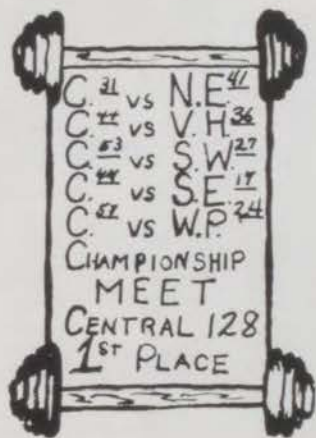 C. 31 vs N.E. 41
C. 44 vs V.H. 36
C. 53 vs S.W. 27
C. vs S.E.
C. vs W.P. 24
CHAMPIONSHIP
MEET
CENTRAL 128
1ST PLACE